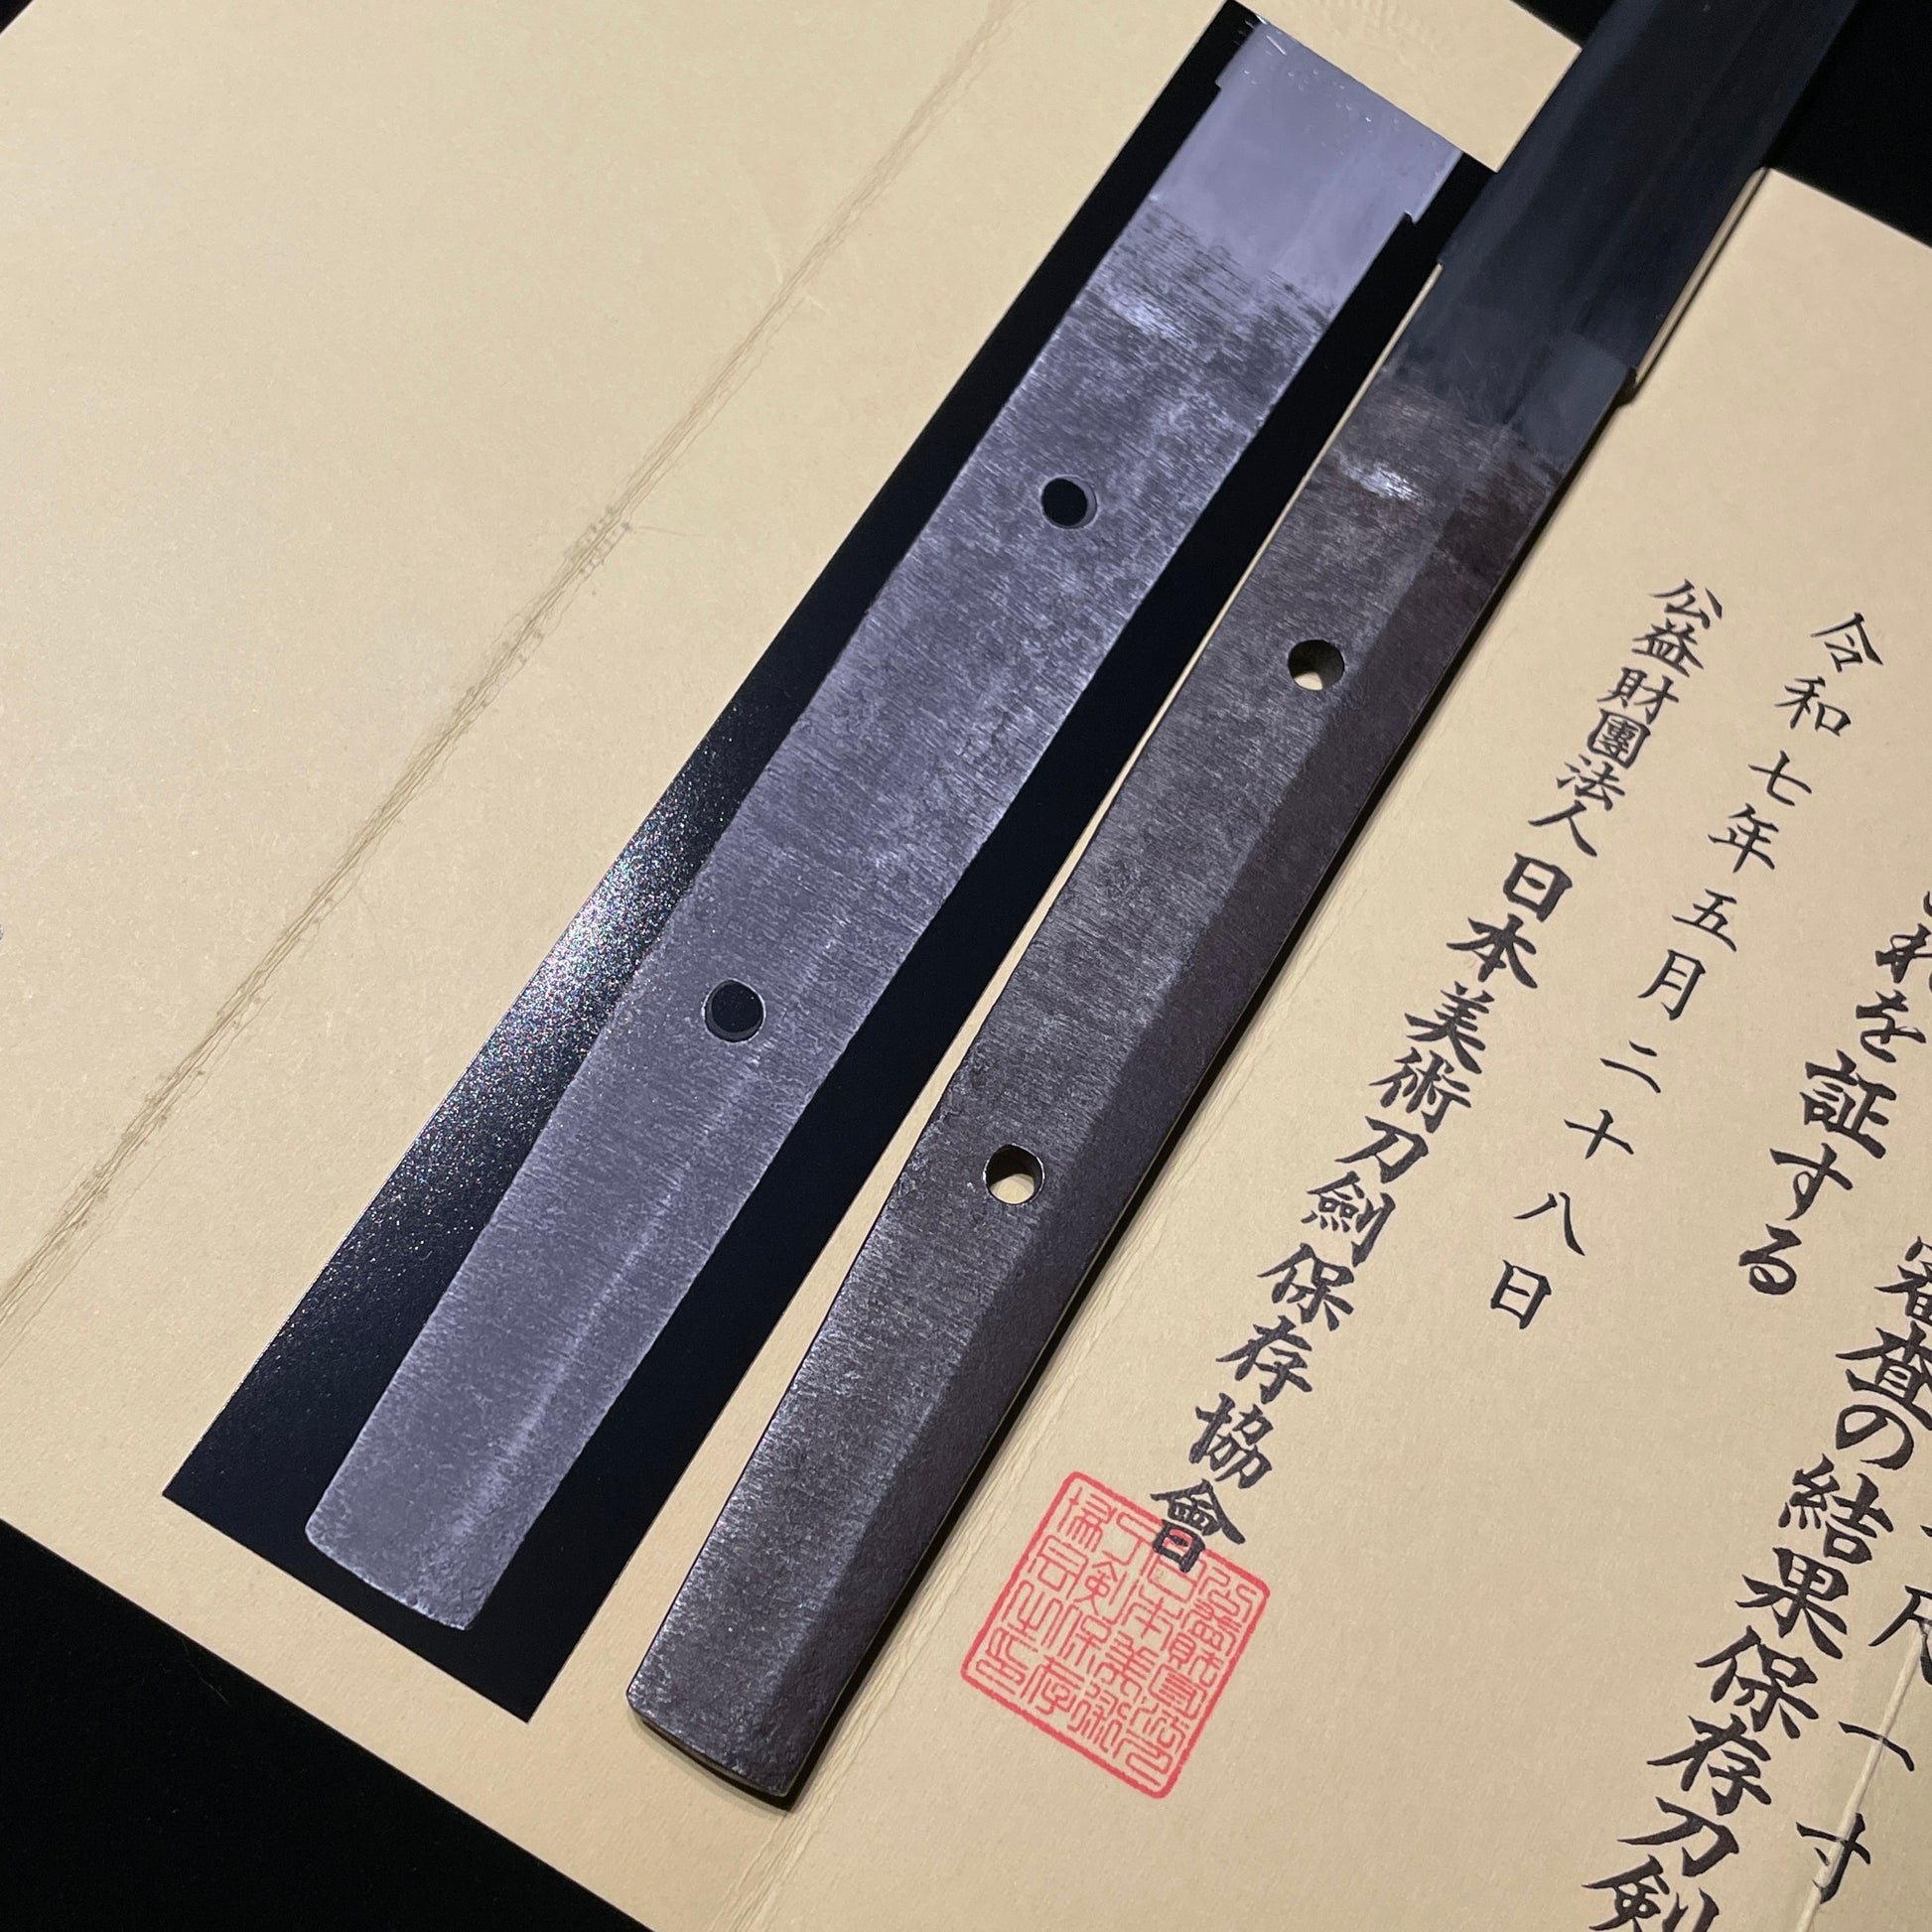 尺一寸
審査の結果保存刀剣
これを証する
令和七年五月二十八日
公益財團法人日本美術刀劍保存協會
公益財団法人
日本美術
刀剣保存
協会之印